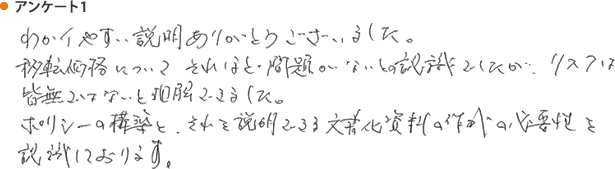 アンケート1
わかりやすい説明ありがとうございました。
移転価格について それほど問題がないとの認識でしたが、リスクは
皆無ではないと理解できました。
ポリシーの構築と、それを説明できる文書化資料の作成の必要性を
認識しております。